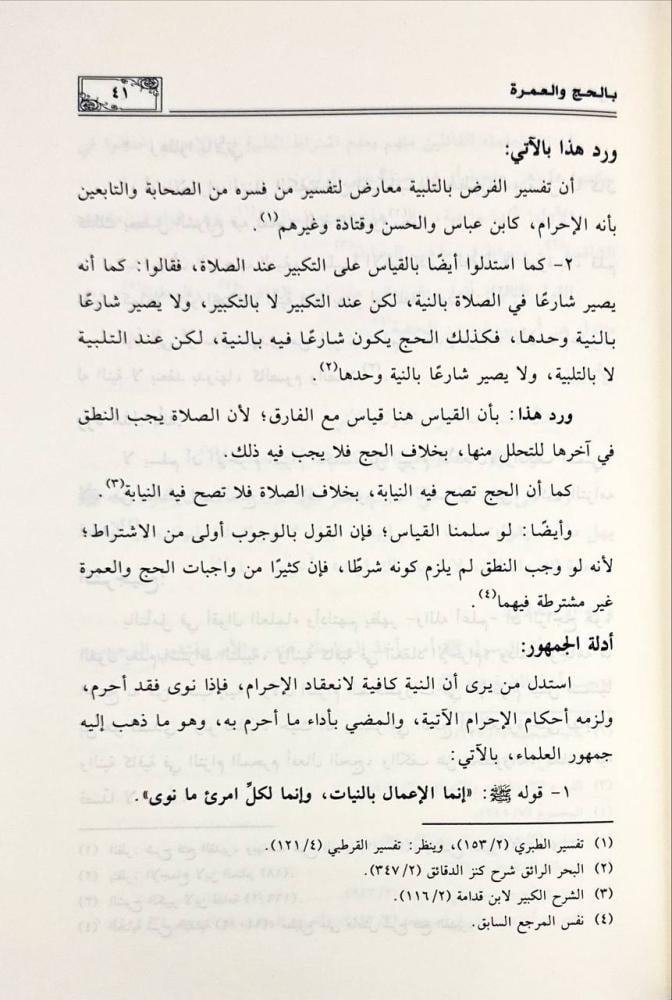 بالحج والعمرة
٤١
ورد هذا بالآتي:
أن تفسير الفرض بالتلبية معارض لتفسير من فسره من الصحابة والتابعين
بأنه الإحرام، كابن عباس والحسن وقتادة وغيرهم(١).
٢- كما استدلوا أيضًا بالقياس على التكبير عند الصلاة، فقالوا: كما أنه
يصير شارعًا في الصلاة بالنية، لكن عند التكبير لا بالتكبير، ولا يصير شارعًا
بالنية وحدها، فكذلك الحج يكون شارعًا فيه بالنية، لكن عند التلبية
لا بالتلبية، ولا يصير شارعًا بالنية وحدها(٢).
ورد هذا: بأن القياس هنا قياس مع الفارق؛ لأن الصلاة يجب النطق
في آخرها للتحلل منها، بخلاف الحج فلا يجب فيه ذلك.
كما أن الحج تصح فيه النيابة، بخلاف الصلاة فلا تصح فيه النيابة(٣).
وأيضًا: لو سلمنا القياس؛ فإن القول بالوجوب أولى من الاشتراط؛
لأنه لو وجب النطق لم يلزم كونه شرطًا، فإن كثيرًا من واجبات الحج والعمرة
غير مشترطة فيهما(٤).
أدلة الجمهور:
استدل من يرى أن النية كافية لانعقاد الإحرام، فإذا نوى فقد أحرم،
ولزمه أحكام الإحرام الآتية، والمضي بأداء ما أحرم به، وهو ما ذهب إليه
جمهور العلماء، بالآتي:
١- قوله ﷺ: «إنما الإعمال بالنيات، وإنما لكلِّ امرئ ما نوى».
(١) تفسير الطبري (١٥٣/٢)، وينظر: تفسير القرطبي (١٢١/٤).
(٢) البحر الرائق شرح كنز الدقائق (٣٤٧/٢).
(٣) الشرح الكبير لابن قدامة (١١٦/٢).
(٤) نفس المرجع السابق.